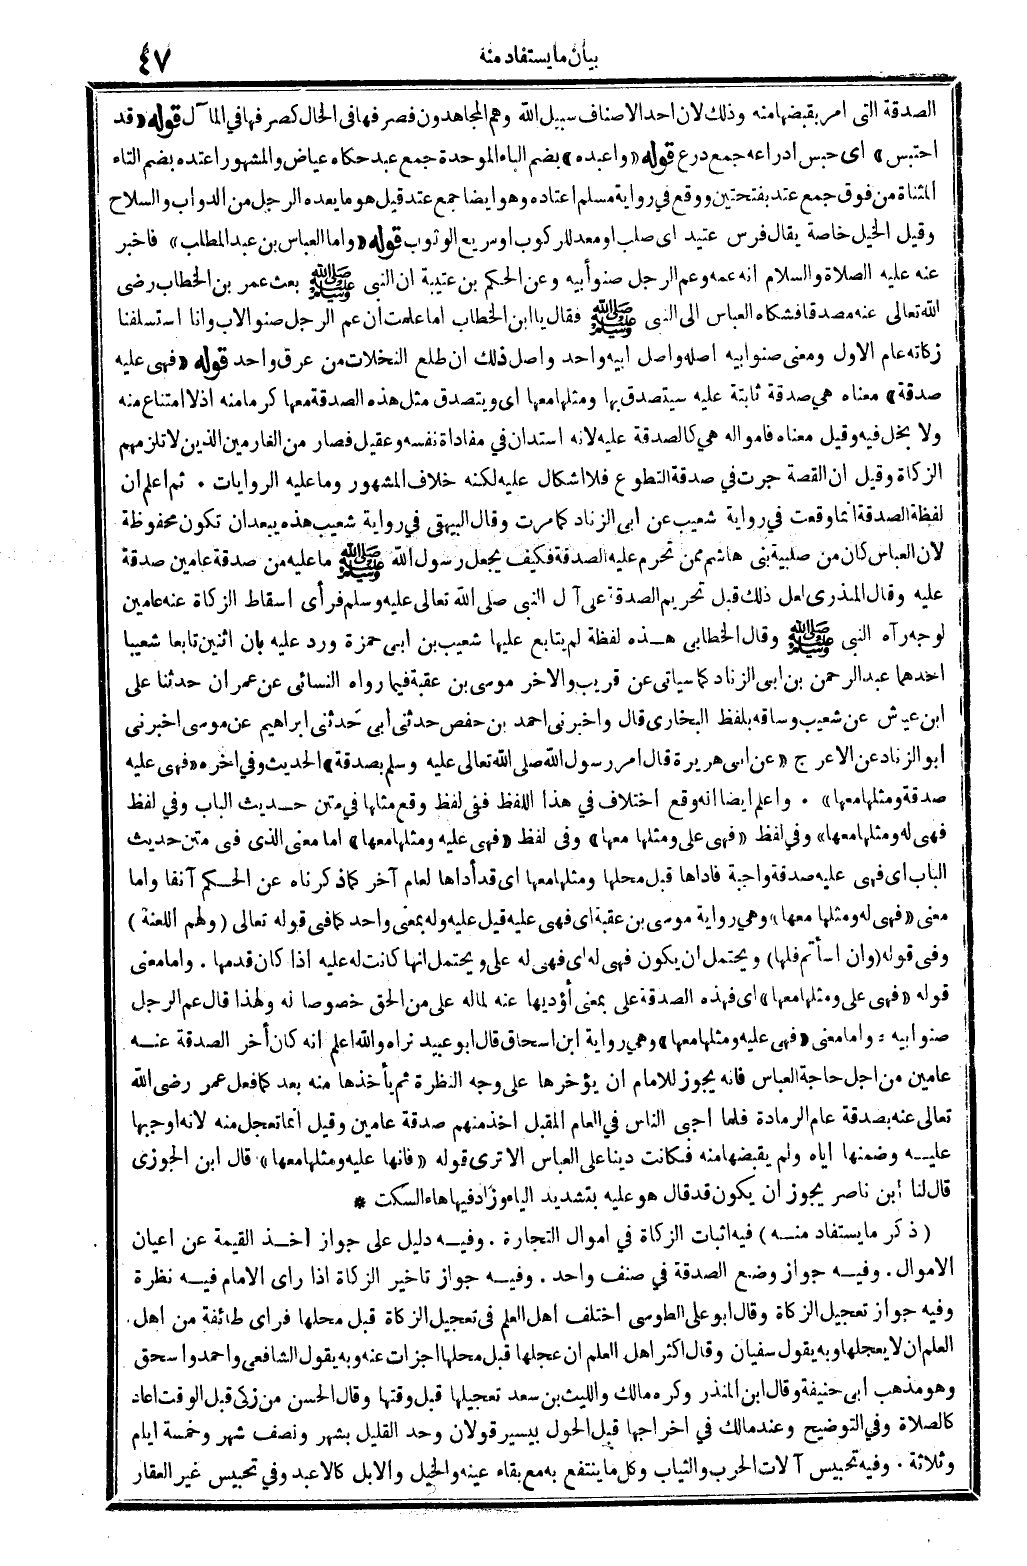 بيان ما يستفاد منه
٤٧
الصدقة التى امر بقبضها منه وذلك لان احد الاصناف سبيل الله وهم المجاهدون فصرفها فى الحال كصرفها فى المآل قوله «قد
احتبس» اى حبس ادراعه جمع درع قوله «واعبده» بضم الباء الموحدة جمع عبد حكاه عياض والمشهور اعتده بضم التاء
المثناة من فوق جمع عتد بفتحتين ووقع في رواية مسلم اعتاده وهو ايضا جمع عتد قيل هو ما يعده الرجل من الدواب والسلاح
وقيل الخيل خاصة يقال فرس عتيد اى صلب او معد للركوب او سريع الوثوب قوله «واما العباس بن عبد المطلب» فاخبر
عنه عليه الصلاة والسلام انه عمه وعم الرجل صنو أبيه وعن الحكم بن عتيبة ان النبى ﷺ بعث عمر بن الخطاب رضى
الله تعالى عنه مصدقا فشكاه العباس الى النبى ﷺ فقال يا ابن الخطاب اما علمت ان عم الرجل صنو الاب وانا استسلفنا
زكاته عام الاول ومعنى صنو ابيه اصله واصل ابيه واحد واصل ذلك ان طلع النخلات من عرق واحد قوله «فهى عليه
صدقة» معناه هي صدقة ثابتة عليه سيتصدق بها ومثلها معها اى ويتصدق مثل هذه الصدقة معها كرما منه اذ لا امتناع منه
ولا بخل فيه وقيل معناه فامواله هي كالصدقة عليه لانه استدان في مفاداة نفسه وعقيل فصار من الغارمين الذين لا تلزمهم
الزكاة وقيل ان القصة جرت في صدقة التطوع فلا اشكال عليه لكنه خلاف المشهور وما عليه الروايات . ثم اعلم ان
لفظة الصدقة انما وقعت في رواية شعيب عن ابى الزناد كما مرت وقال البيهقى في رواية شعيب هذه يبعد ان تكون محفوظة
لان العباس كان من صلبية بنى هاشم ممن تحرم عليه الصدقة فكيف يجعل رسول الله ﷺ ما عليه من صدقة عامين صدقة
عليه وقال المنذرى لعل ذلك قبل تحريم الصدقة على آل النبى صلى الله تعالى عليه وسلم فرأى اسقاط الزكاة عنه عامين
لوجه رآه النبى ﷺ وقال الخطابى هــذه لفظة لم يتابع عليها شعيب بن ابى حمزة ورد عليه بان اثنين تابعا شعيبا
احدهما عبد الرحمن بن ابى الزناد كما سياتى عن قريب والاخر موسى بن عقبة فيما رواه النسائى عن عمران حدثنا على
ابن عياش عن شعيب وساقه بلفظ البخارى قال واخبرنى احمد بن حفص حدثنى أبى حدثنى ابراهيم عن موسى اخبرنى
ابو الزناد عن الاعرج «عن ابى هريرة قال امر رسول الله صلى الله تعالى عليه وسلم بصدقة» الحديث وفي اخره «فهى عليه
صدقة ومثلها معها» . واعلم ايضا انه وقع اختلاف في هذا اللفظ ففى لفظ وقع مثلها في متن حــديث الباب وفي لفظ
فهى له ومثلها معها» وفي لفظ «فهى على ومثلها معها» وفى لفظ «فهى عليه ومثلها معها» اما معنى الذى فى متن حديث
الباب اى فهى عليه صدقة واجبة فاداها قبل محلها ومثلها معها اى قد أداها لعام آخر كما ذكرناه عن الحــكم آنفا واما
معنى «فهى له ومثلها معها» وهي رواية موسى بن عقبة اى فهى عليه قيل عليه وله بمعنى واحد كما فى قوله تعالى (ولهم اللعنة)
وفى قوله (وان اسأتم فلها) ويحتمل ان يكون فهى له اى فهى له على ويحتمل انها كانت له عليه اذا كان قدمها . واما معنى
قوله «فهى على ومثلها معها» اى فهذه الصدقة على بمعنى أؤديها عنه لما له على من الحق خصوصا له ولهذا قال عم الرجل
صنو ابيه : واما معنى «فهى عليه ومثلها معها» وهي رواية ابن اسحاق قال ابو عبيد نراه والله اعلم انه كان أخر الصدقة عنــه
عامين من اجل حاجة العباس فانه يجوز للامام ان يؤخرها على وجه النظرة ثم يأخذها منه بعد كما فعل عمر رضى الله
تعالى عنه بصدقة عام الرمادة فلما اجى الناس في العام المقبل اخذ منهم صدقة عامين وقيل انما تعجل منه لانه اوجبها
عليــه وضمنها اياه ولم يقبضها منه فكانت دينا على العباس الا ترى قوله «فانها عليه ومثلها معها» قال ابن الجوزى
قال لنا ابن ناصر يجوز ان يكون قد قال هو عليه بتشديد الياء وزاد فيها هاء السكت *
(ذكر ما يستفاد منــه) فيه اثبات الزكاة في اموال التجارة . وفيــه دليل على جواز اخــذ القيمة عن اعيان
الاموال . وفيــه جواز وضع الصدقة في صنف واحد . وفيــه جواز تاخير الزكاة اذا راى الامام فيــه نظرة
وفيه جواز تعجيل الزكاة وقال ابو على الطوسى اختلف اهل العلم فى تعجيل الزكاة قبل محلها فراى طائفة من اهل
العلم ان لا يعجلها وبه يقول سفيان وقال اكثر اهل العلم ان عجلها قبل محلها اجزات عنه وبه يقول الشافعى واحمد واسحق
وهو مذهب ابى حنيفة وقال ابن المنذر وكره مالك والليث بن سعد تعجيلها قبل وقتها وقال الحسن من زكى قبل الوقت اعاد
كالصلاة وفي التوضيح وعند مالك في اخراجها قبل الحول بيسير قولان وحد القليل بشهر ونصف شهر وخمسة ايام
وثلاثة . وفيه تحبيس آلات الحرب والثياب وكل ما ينتفع به مع بقاء عينه والخيل والابل كالاعبد وفي تحبيس غير العقار